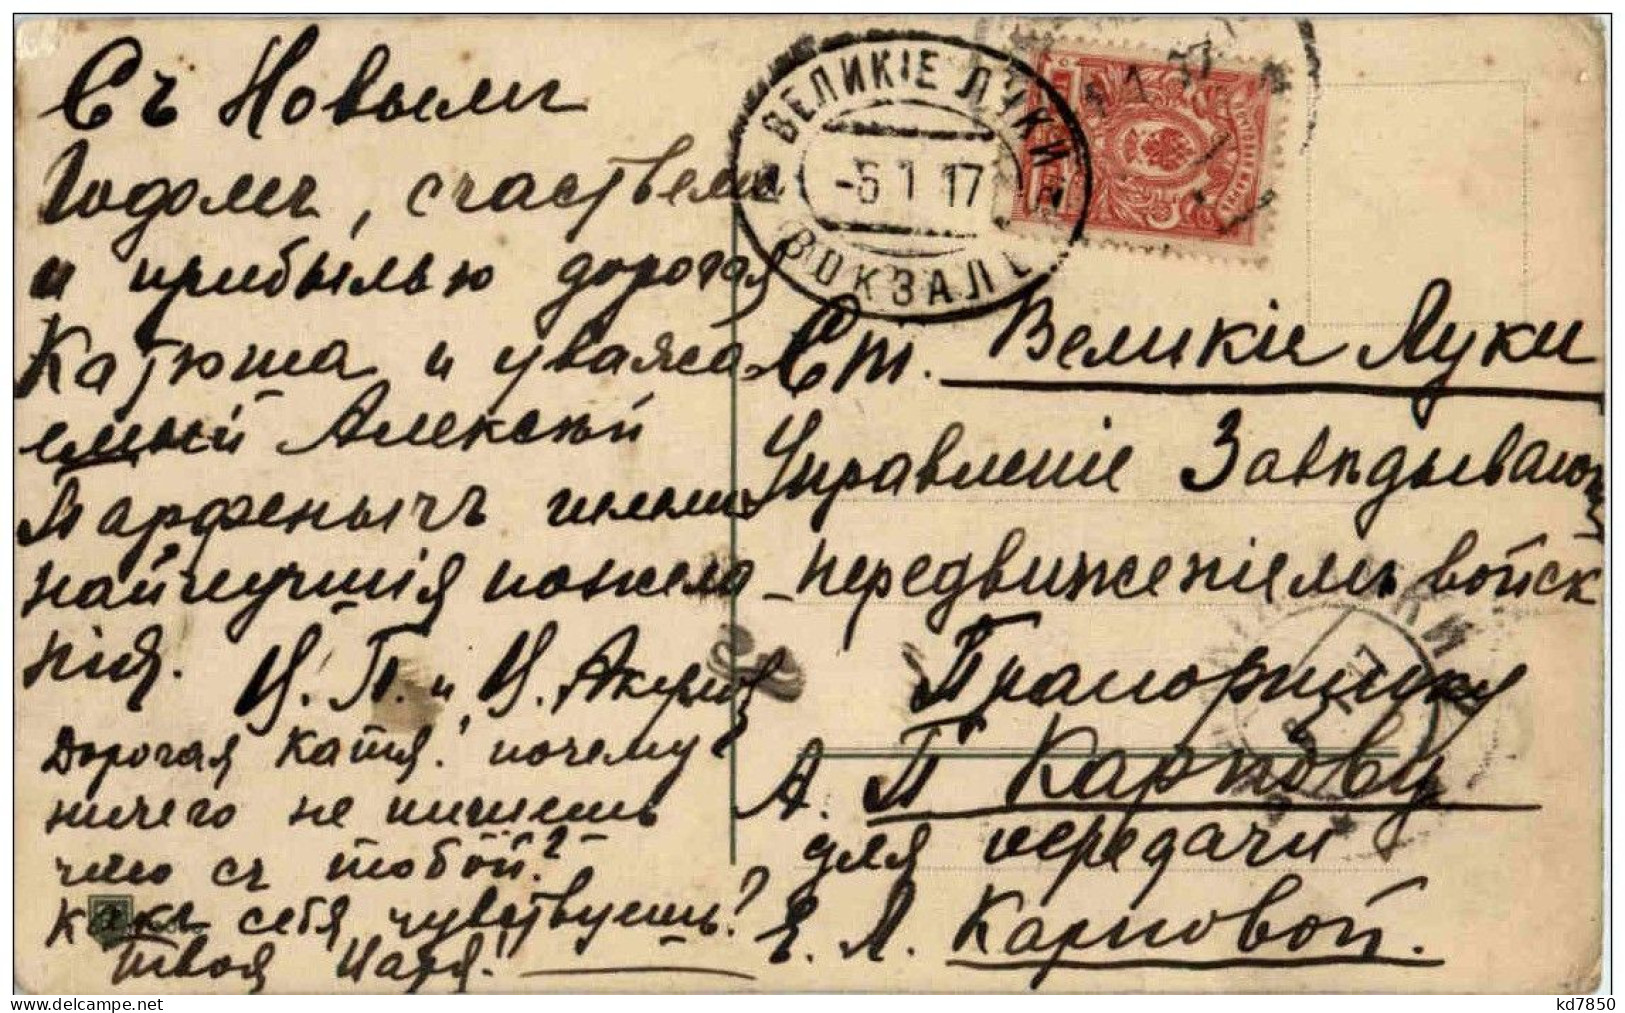 Съ Новымъ
Годомъ, счастьемъ
и прибылью дорогая
Катюша и уважае
емый Алексѣй
Парфенычъ шлемъ
найлучшія пожела-
нія. И. П. и И.
Дорогая Катя! почему
ничего не пишешь
что съ тобой?
Какъ себя чувствуешь?
твоя
ВЕЛИКІЕ ЛУКИ
-6 1 17
ВОКЗАЛЪ
Ст. Великіе Луки
Управленіе Завѣдывающ
передвиженіемъ войск
Прапорщику
А. П Карпову
для передачи
Е. Л. Карповой.
kd7850